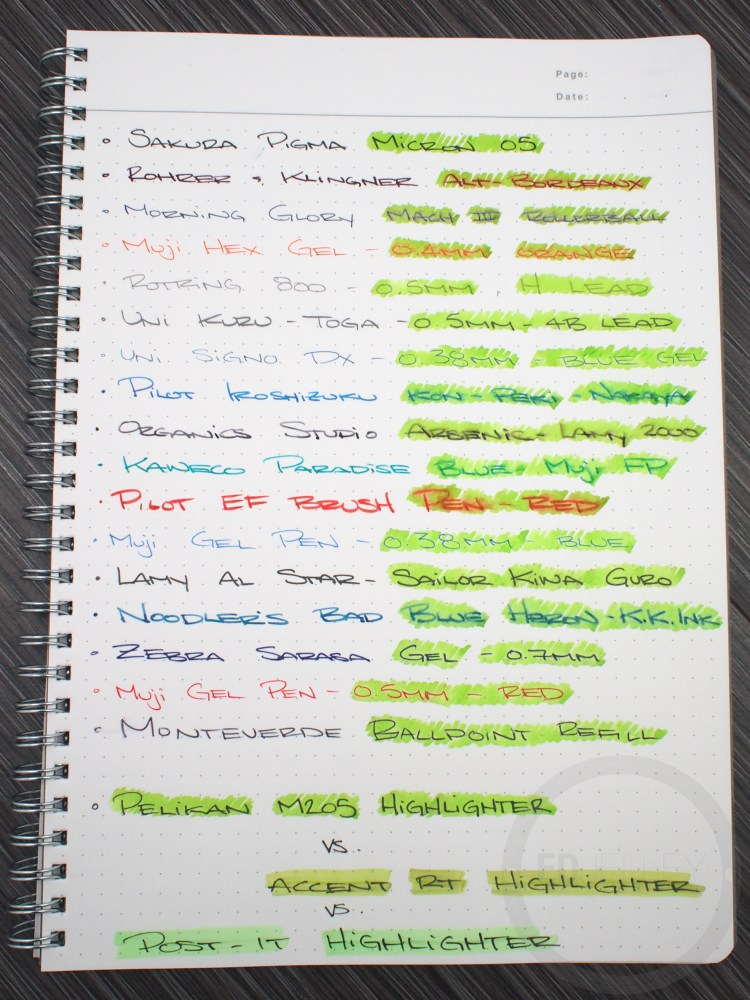 Page:
Date:
SAKURA PIGMA MICRON 05
ROHRER & KLINGNER ALT-BORDEAUX
MORNING GLORY MACH III ROLLERBALL
MUJI HEX GEL - 0.4MM ORANGE
ROTRING 800 - 0.5MM, H LEAD
UNI KURU-TOGA - 0.5MM - 4B LEAD
UNI SIGNO DX - 0.38MM - BLUE GEL
PILOT IROSHIZUKU KON-PEKI - NAKAYA
ORGANICS STUDIO ARSENIC - LAMY 2000
KAWECO PARADISE BLUE - MUJI FP
PILOT EF BRUSH PEN - RED
MUJI GEL PEN - 0.38MM - BLUE
LAMY AL STAR - SAILOR KIWA GURO
NOODLER'S BAD BLUE HERON - K.K. INK
ZEBRA SARASA GEL - 0.7MM
MUJI GEL PEN - 0.5MM - RED
MONTEVERDE BALLPOINT REFILL
PELIKAN M205 HIGHLIGHTER
VS.
ACCENT RT HIGHLIGHTER
VS.
POST-IT HIGHLIGHTER
EDJELLEY